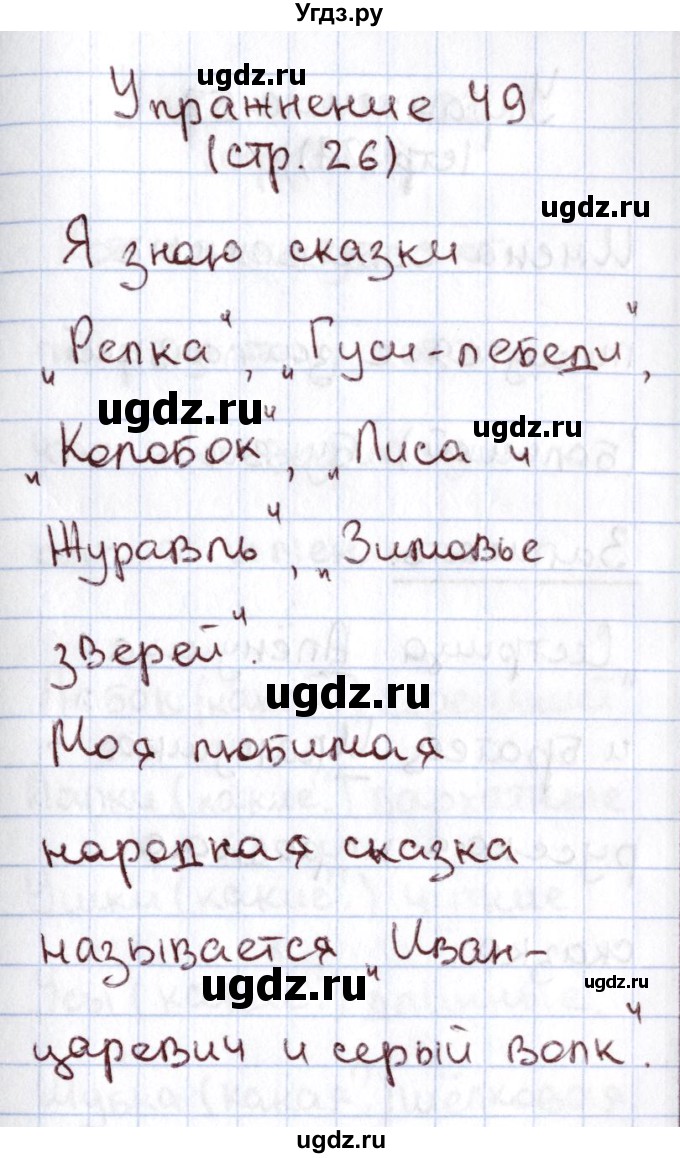 Угдз.ру
ugdz.ru
Упражнение 49
(стр. 26)
ugdz.ru
Я знаю сказки
„Репка“, „Гуси-лебеди“,
ugdz.ru
ugdz.ru
„Колобок“, „Лиса и
Журавль“, „Зимовье
зверей“.
ugdz.ru
Моя любимая
народная сказка
называется „Иван-
ugdz.ru
ugdz.ru
царевич и серый волк“.
ugdz.ru